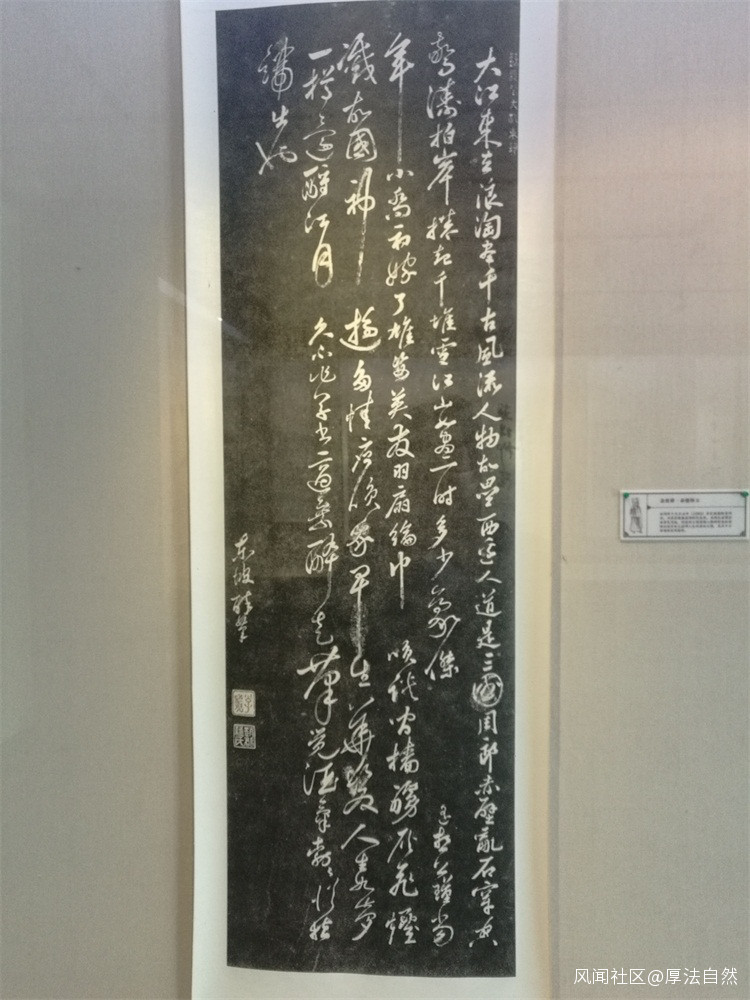 大江東去浪淘盡千古風流人物故壘西邊人道是三國周郎赤壁亂石穿空
驚濤拍岸捲起千堆雪江山如畫一时多少豪傑 遙想公瑾當
年小喬初嫁了雄姿英發羽扇綸巾 笑談間檣艣灰飛煙
滅故國神遊多情應笑我早生華髮人生如夢
一樽還酹江月 久不作草書適乘醉走筆覺酒氣勃勃似指
端出也
東坡醉筆
风闻社区@厚法自然